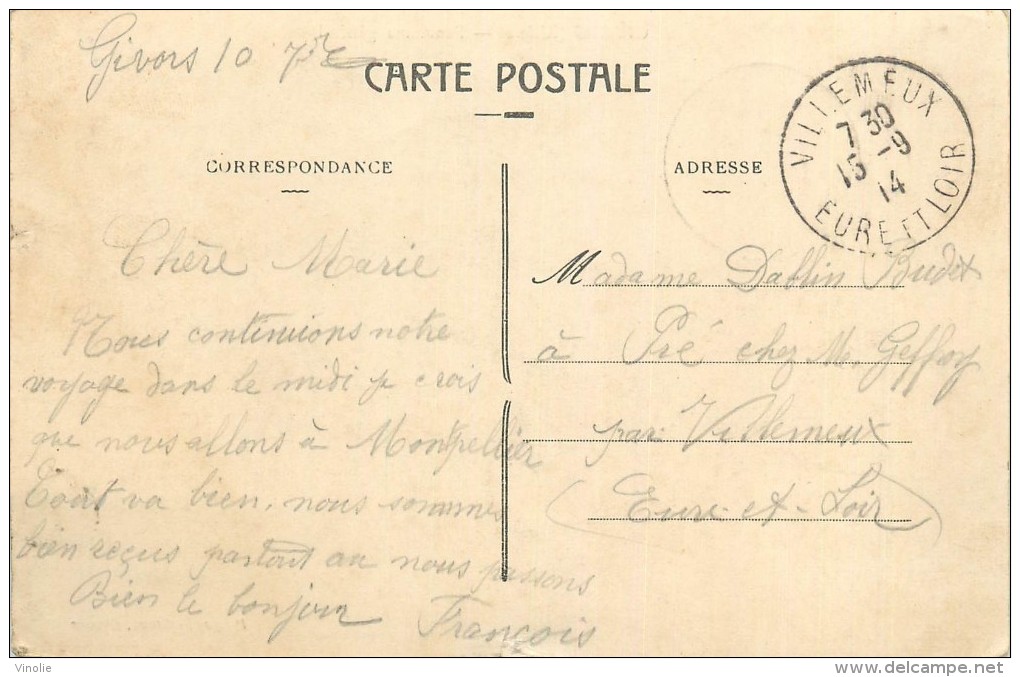 Givors 10 7bre
CARTE POSTALE
VILLEMEUX
7 30
15 -9
14
EURE ET LOIR
CORRESPONDANCE
ADRESSE
Chère Marie
Nous continuions notre
voyage dans le midi je crois
que nous allons à Montpellier
Tout va bien, nous sommes
bien reçus partout où nous passons
Bien le bonjour
François
Madame Dablin Budet
à Pré chez M. Geffroy
par Villemeux
(Eure-et-Loir)
Vinolie
www.delcampe.net